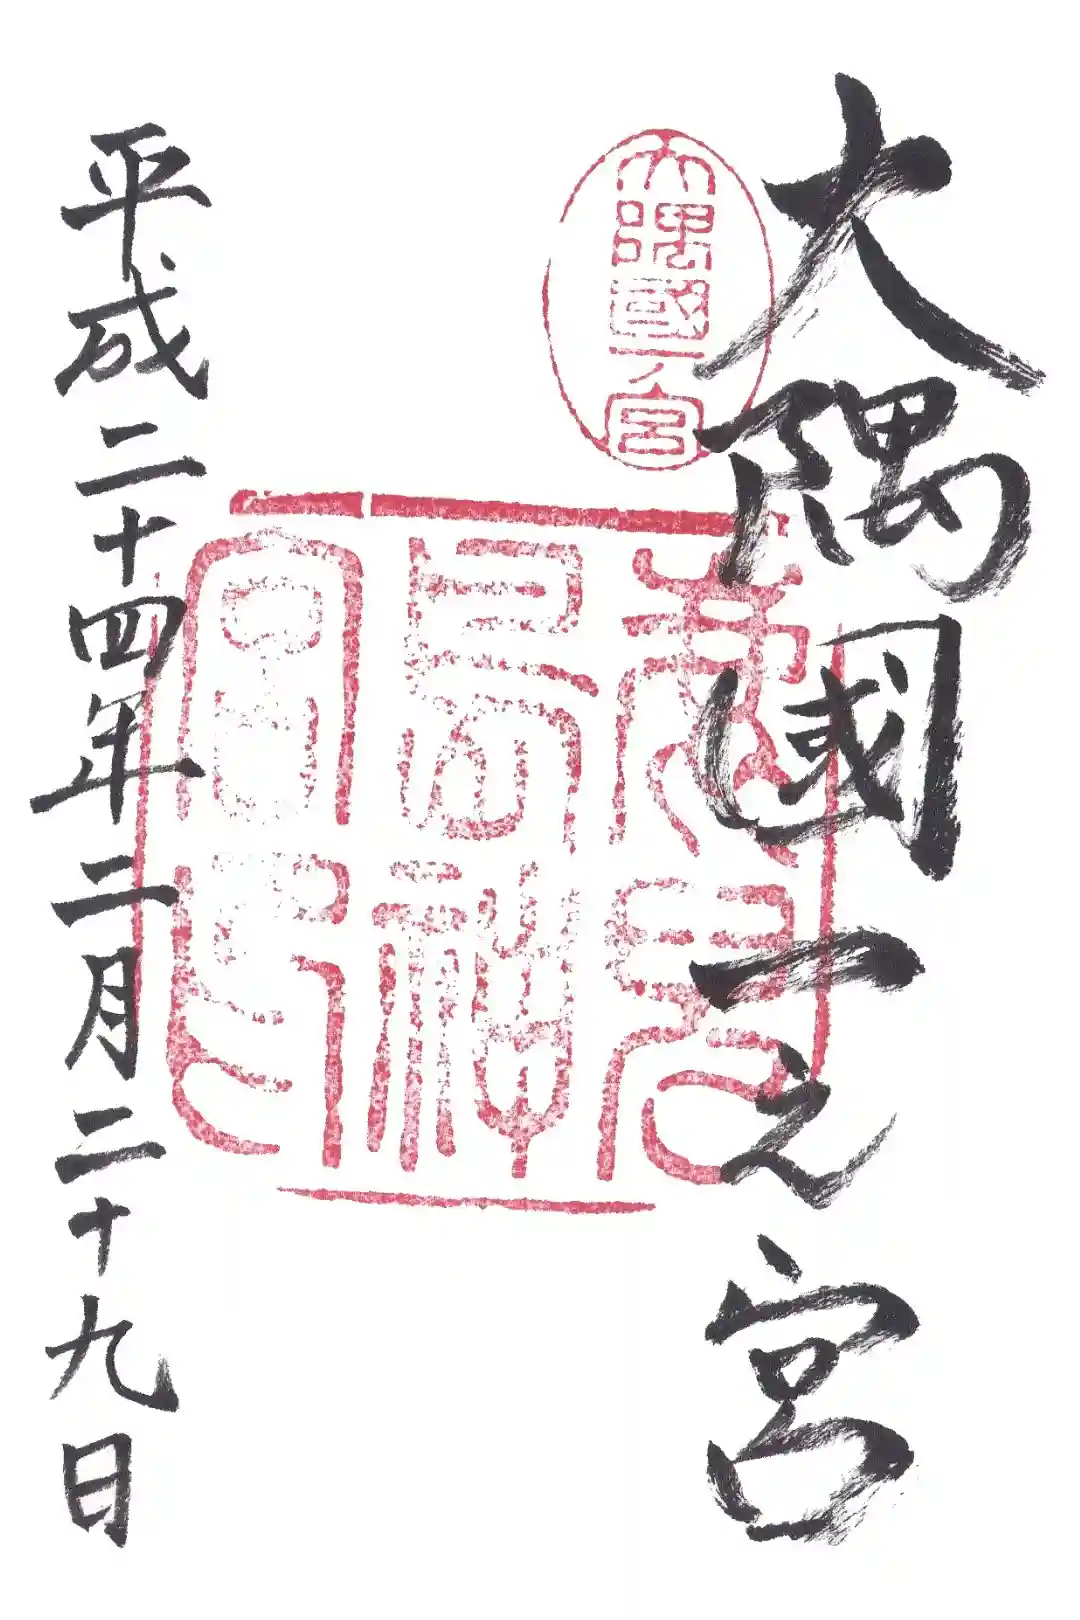 大隅國一之宮
大隅國一ノ宮
鹿児島神宮之印
平成二十四年二月二十九日